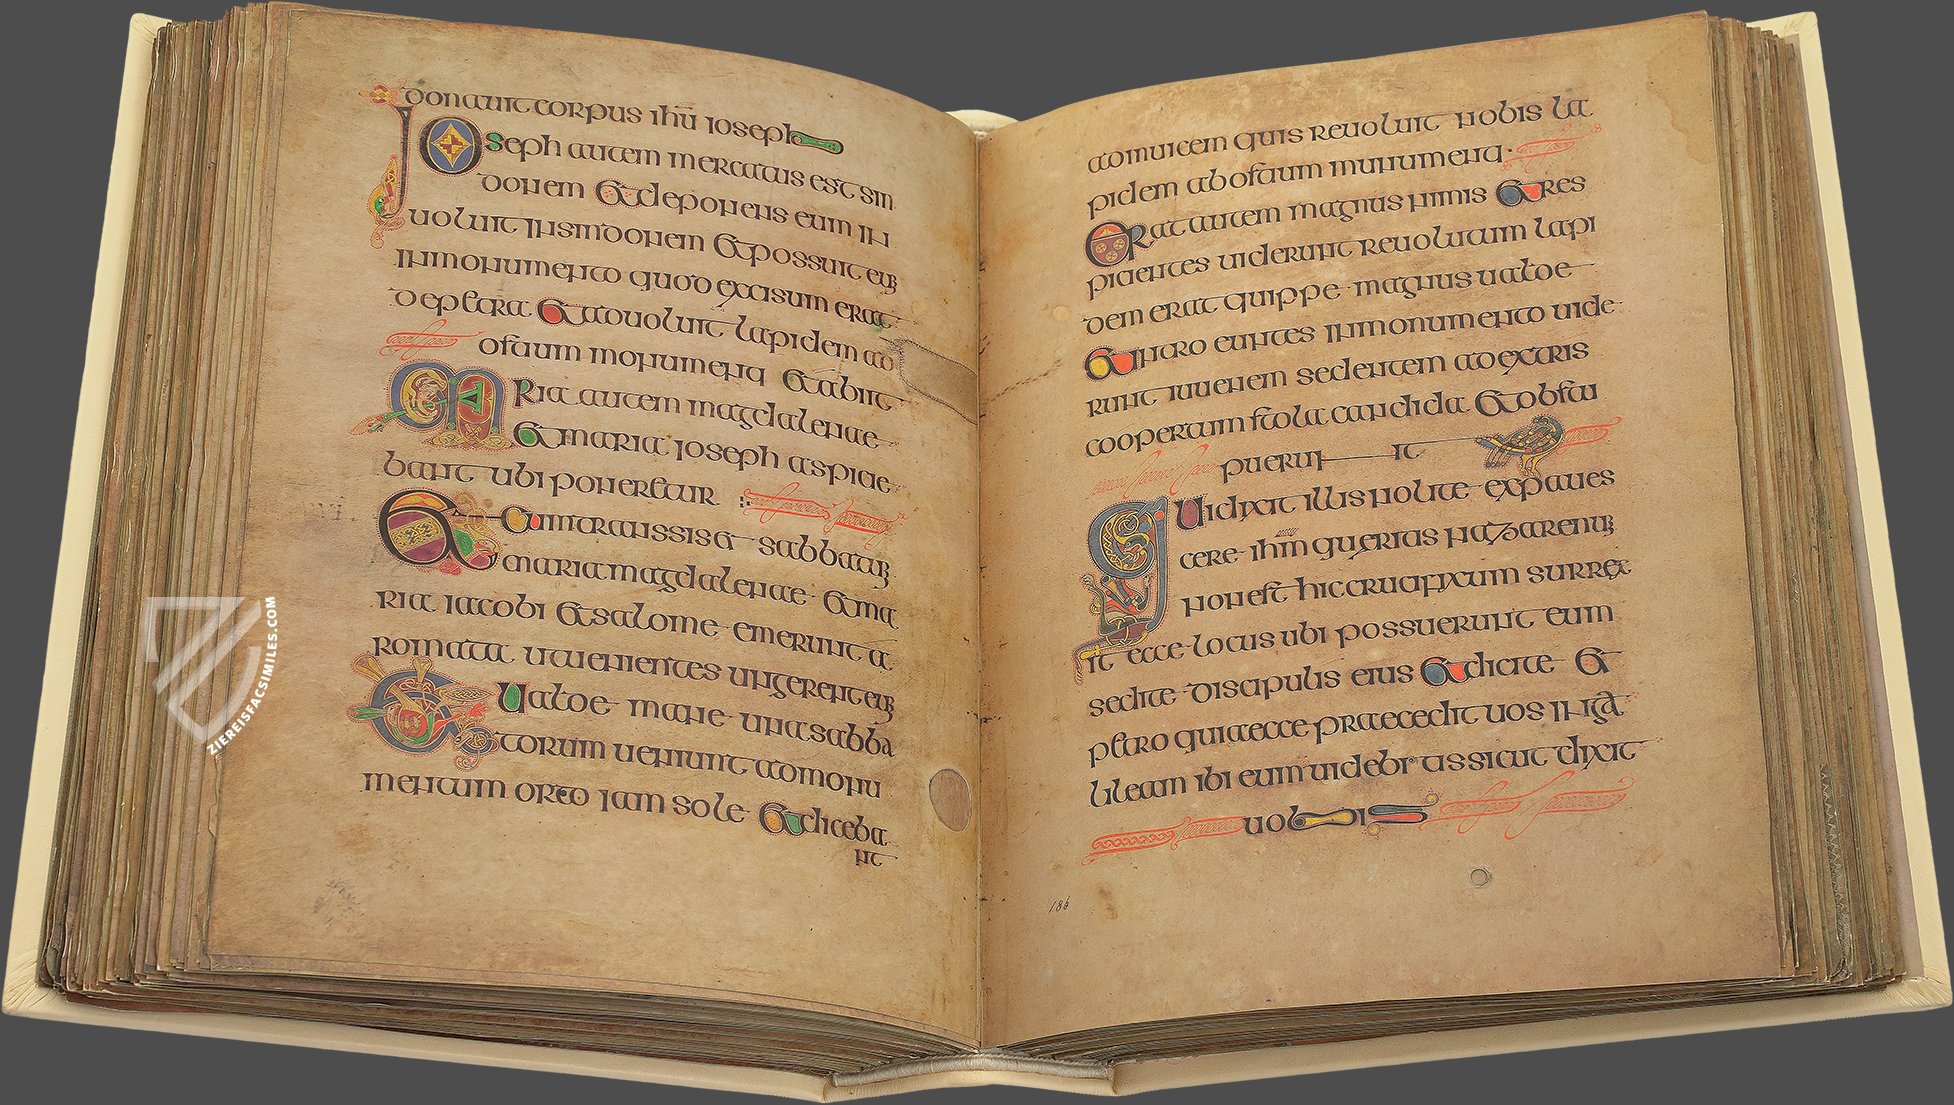 donauit corpus ihu ioseph
Ioseph autem mercatus est sin
donem & deponens eum in
uoluit in sindonem & possuit eum
in monumento quod excisum erat
de petra & aduoluit lapidem ad
ostium monumenti & abiit
Maria autem magdalenae
& maria ioseph aspicie
bant ubi poneretur
Et cum transsis& sabbatum
maria magdalenae & ma
ria iacobi & salome emerunt a
romata ut uenientes ungerent eum
Et ualde mane una sabba
torum ueniunt ad monu
mentum orto iam sole & diceba
nt
ad inuicem quis reuoluit nobis la
pidem ab ostium munumenti
Erat autem magnus nimis & res
picientes uiderunt reuolutum lapi
dem erat quippe magnus ualde
& intro euntes in monumento uide
runt iuuenem sedentem ad extris
coopertum stola candida & obstu
puerunt
Qui dixit illis nolite expaues
cere ihm queritis nazarenum
non est hic crucifixum surrex
it ecce locus ubi possuerunt eum
sed ite discipulis eius & dicite &
petro quia ecce praecedit uos in ga
lileam ibi eum uidebitis sicut dixit
uobis
186
ZIEREISFACSIMILES.COM